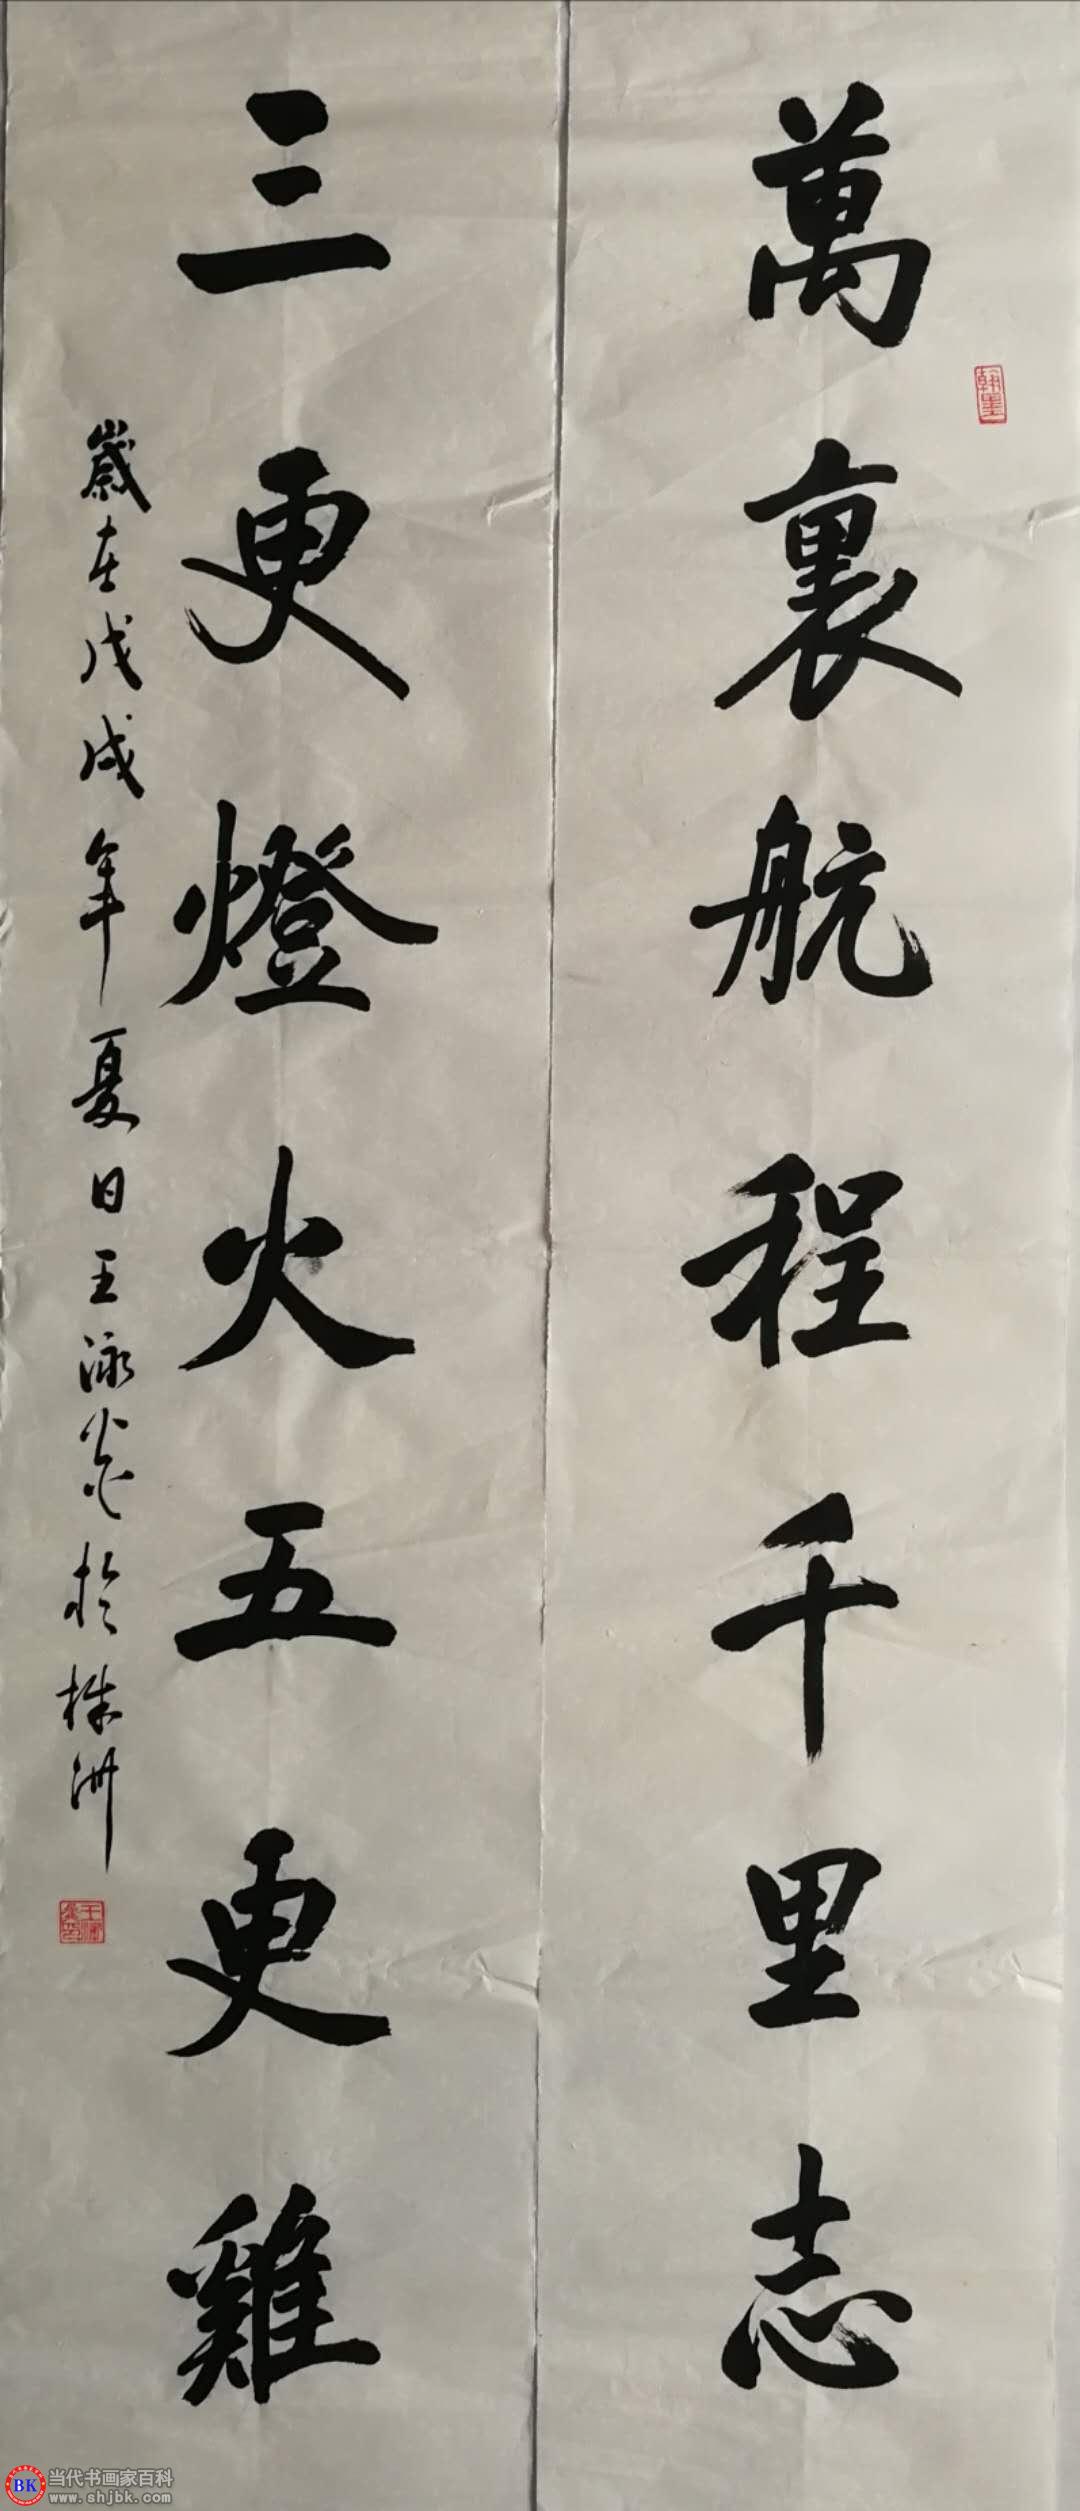 萬裏航程千里志
翰墨
三更燈火五更雞
歲在戊戌年夏日王泳炎於株洲
BK 当代书画家百科
www.shjbk.com